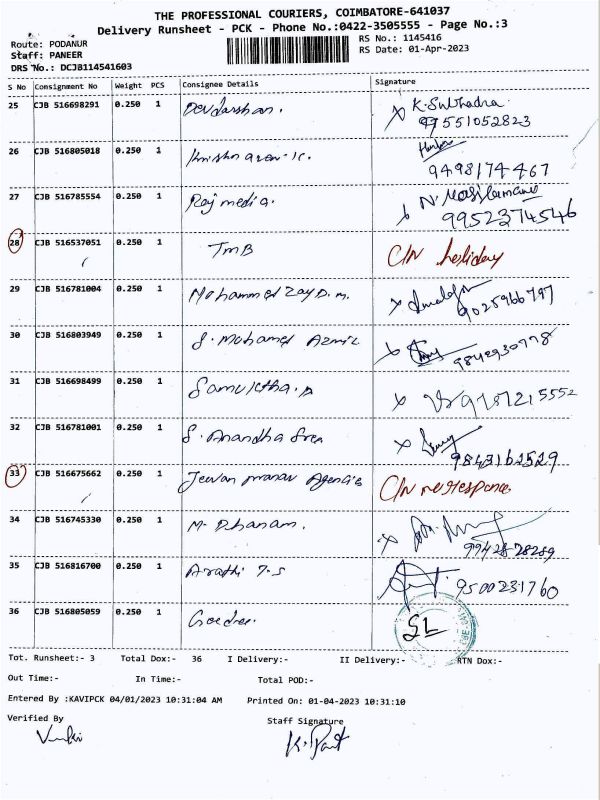 THE PROFESSIONAL COURIERS, COIMBATORE-641037
Delivery Runsheet - PCK - Phone No.:0422-3505555 - Page No.:3
Route: PODANUR
Staff: PANEER
DRS No.: DCJB114541603
RS No.: 1145416
RS Date: 01-Apr-2023
S No Consignment No Weight PCS Consignee Details Signature
25 CJB 516698291 0.250 1 Devdarshan. x K. Subhadra
9755105 2823
26 CJB 516805018 0.250 1 Krishnaven.K.
9498174467
27 CJB 516785554 0.250 1 Raj media. x N.
9952374546
28 CJB 516537051 0.250 1 TMB C/N holiday
29 CJB 516781004 0.250 1 Mohammed Zayd. M. x
9025966797
30 CJB 516803949 0.250 1 S. Mohamed Azmil x
9842930778
31 CJB 516698499 0.250 1 Samuktha. x
32 CJB 516781001 0.250 1 S. Anandha Sree x
9843162529
33 CJB 516675662 0.250 1 Jeevan pranav Agencies C/N no response
34 CJB 516745330 0.250 1 M. Dhanam. x
99428 28289
35 CJB 516816700 0.250 1 Arathi T.S 9500231760
36 CJB 516805059 0.250 1
Tot. Runsheet:- 3 Total Dox:- 36 I Delivery:- II Delivery:- RTN Dox:-
Out Time:- In Time:- Total POD:-
Entered By :KAVIPCK 04/01/2023 10:31:04 AM Printed On: 01-04-2023 10:31:10
Verified By Staff Signature